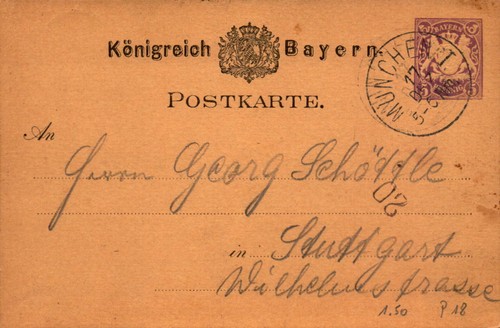 Königreich Bayern.
POSTKARTE.
BAYERN
5 5
MÜNCHEN I
An
Herrn Georg Schöttle
20
in Stuttgart
Wilhelmstrasse
1.50 P 18